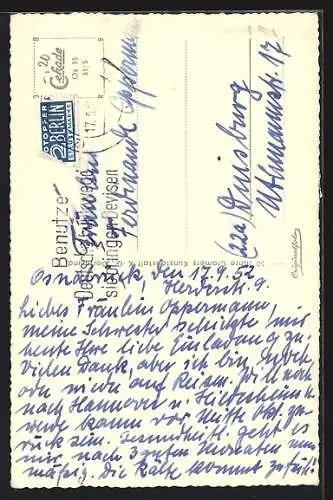 20
Cekade
Os 35
51/5
NOTOPFER
2 BERLIN
STEUERMARKE
17.
Benutze
statt Devisen
Fräulein
Ferdinande Oppermann
(22a) Duisburg
Uhlmannstr. 17
Originalfoto
Osnabrück, den 17.9.52
Herderstr. 9.
Liebes Fräulein Oppermann,
meine Schwester schickte mir
heute Ihre liebe Einladung zu.
Vielen Dank, aber ich bin noch
oder wieder auf Reisen. Will noch
nach Hannover u. Hildesheim u.
werde kaum vor Mitte Okt. zu-
rück sein. Gesundheitl. geht es
mir nach 3 guten Monaten nur
mäßig. Die Kälte kommt zu früh!